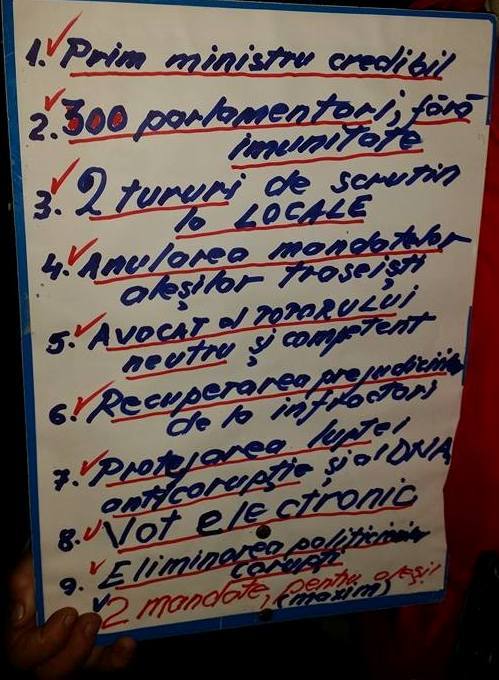 1. Prim ministru credibil
2. 300 parlamentari, fără
imunitate
3. 2 tururi de scrutin
la LOCALE
4. Anularea mandatelor
aleșilor traseiști
5. AVOCAT al POPORULUI
neutru și competent
6. Recuperarea prejudiciilor
de la infractori
7. Protejarea luptei
anticorupție și al DNA
8. Vot electronic
9. Eliminarea politicienilor
corupți
2 mandate, pentru aleși
(maxim)